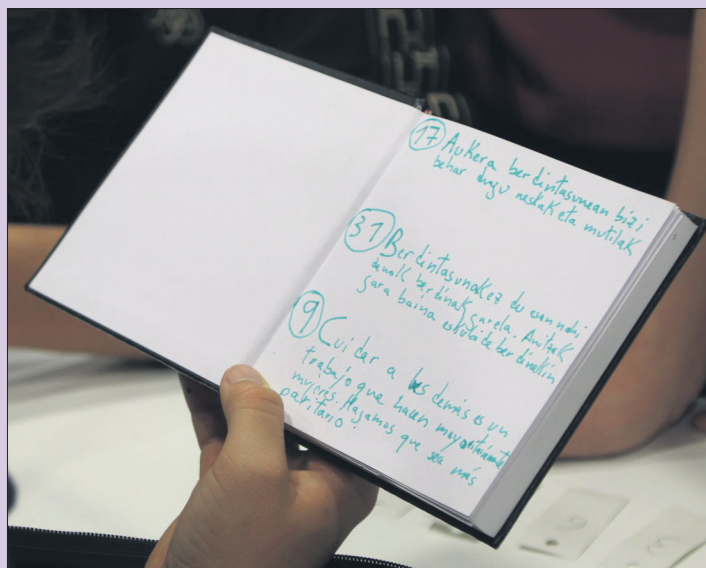 17 Aukera berdintasunean bizi
behar dugu neskak eta mutilak
31 Berdintasunak ez du esan nahi
denok berdinak garela. Anitzak
gara baina eskubide berdinekin
9 Cuidar a los demás es un
trabajo que hacen mayoritariamente
mujeres. Hagamos que sea más
paritario